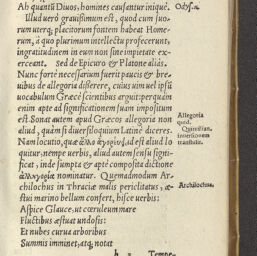 Ab quantũ Diuos, homines causantur iniquè. Odyſ.α.
Illud uerò grauiſſimum est, quod cum ſuo-
rum uterq; placitorum fontem habeat Home-
rum, à quo plurimum intellectu profecerunt,
ingratitudinem in eum non ſine impietate ex-
erceant. Sed de Epicuro & Platone aliás.
Nunc fortè neceſſarium fuerit paucis & bre-
uibus de allegoria diſſerere, cuius uim uel ipſũ
uocabulum Græcè ſcientibus arguit: perquàm
enim aptè ad ſignificationem ſuam impoſitum
est Sonat autem apud Græcos allegoria non Allegoria quid.
aliud, quàm ſi diuerſiloquium Latinè diceres Quintilian.
Nam locutio, quæ ἄλλα ἀγορεύει, ad est aliud lo inuerſionem tranſtulit.
quitur, nempe uerbis, aliud autem ſenſu ſignifi
cat, inde ſumpta & aptè compoſita dictione
ἀλληγορία nominatur. Quemadmodum Ar-
chilochus in Thracijs malis periclitatus, æ- Archilochus.
stus marino bellum confert, hiſce uerbis:
Aſpice Glauce, ut cœruleum mare
Fluctibus æſtuat undoſis:
Et nubes curua arboribus
Summis imminet, atq; notat
h 2 Tempe-